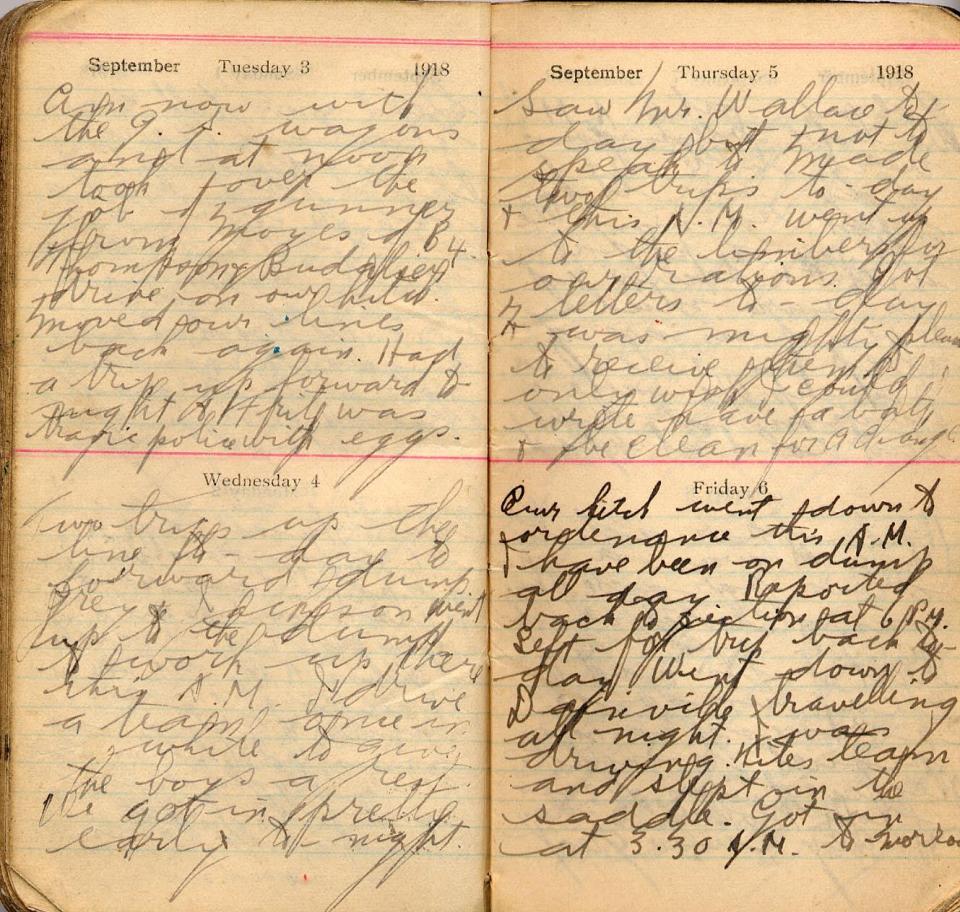 September Tuesday 3 1918
Am now with
the G. S. wagons
and at noon
took over the
job of gunner
from Moyes of B4.
Thompson Budd
drive on our
Moved our lines
back again. Had
a trip up forward to
night & Fritz was
with eggs.
Wednesday 4
Two trips up the
line to-day to
forward dump.
Frey & went
up to the dump
to work up there
this A.M. I drive
a team once in
while to give
the boys a rest
We got in pretty
early to-night.
September Thursday 5 1918
Saw Mr. Wallace to
day but not to
speak to Made
two trips to-day
& this A.M. went up
to the limbers for
our rations. Got
7 letters to-day
& was mighty
to receive them
only wish I could
write & have a
& be clean for a
Friday 6
Our hitch went down to
ordenance this A.M.
I have been on dump
all day Reported
back to section at 6 P.M.
Left for trip back to-
day Went down to
travelling
all night. I was
driving team
and slept in the
saddle. Got in
at 3.30 A.M.